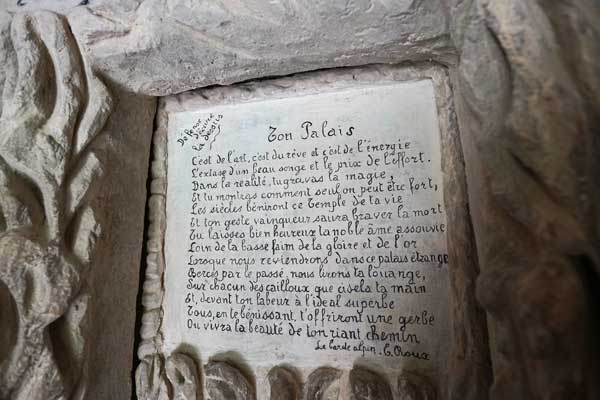 Défense
d'écrire
là dessus
Ton Palais
C'est de l'art, c'est du rêve et c'est de l'énergie
L'extase d'un beau songe et le prix de l'effort.
Dans la réalité, tu gravas la magie,
Et tu montras comment seul on peut être fort,
Les siècles béniront ce temple de ta vie
Et ton geste vainqueur saura braver la mort
Tu laisses bien heureux ta noble âme assouvie
Loin de la basse faim de la gloire et de l'or
Lorsque nous reviendrons dans ce palais étrange
Bercés par le passé, nous lirons ta louange,
Sur chacun des cailloux que cisela ta main
Et, devant ton labeur à l'idéal superbe
Tous, en te bénissant, t'offriront une gerbe
Où vivra la beauté de ton riant chemin
Le barde alpin. E. Roux